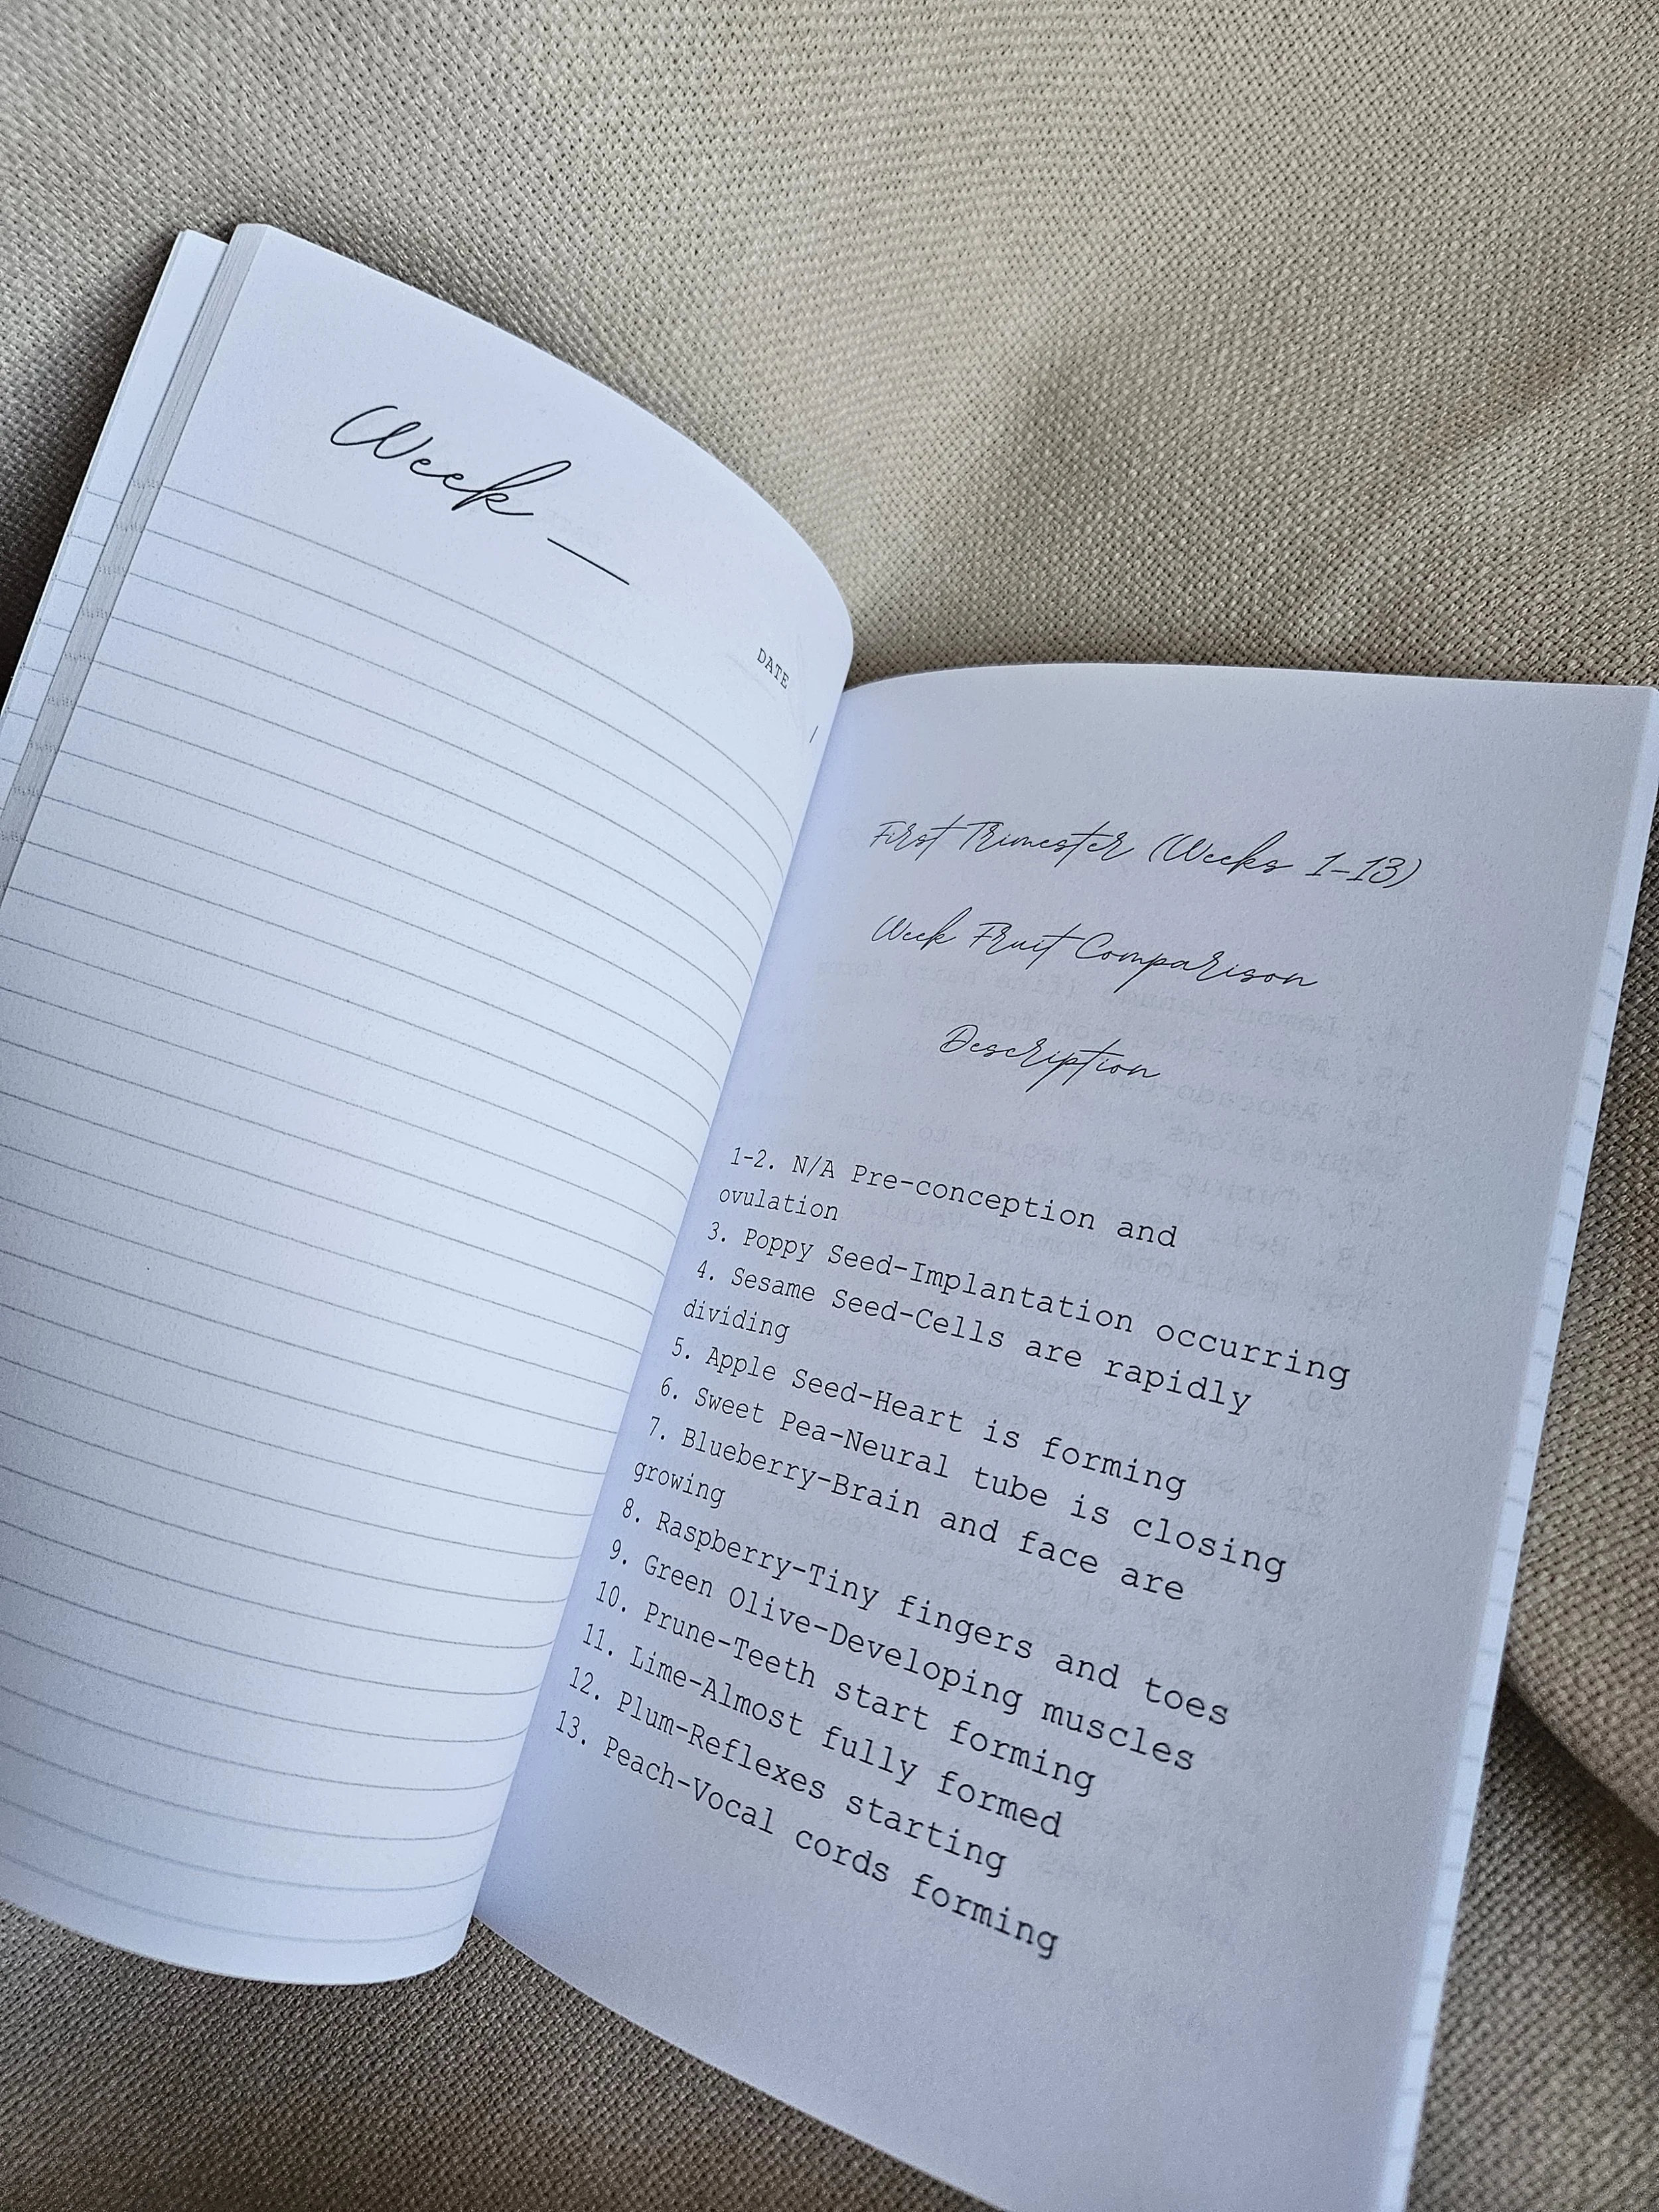 Week __
DATE
/
First Trimester (Weeks 1-13)
Week Fruit Comparison
Description
1-2. N/A Pre-conception and
ovulation
3. Poppy Seed-Implantation occurring
4. Sesame Seed-Cells are rapidly
dividing
5. Apple Seed-Heart is forming
6. Sweet Pea-Neural tube is closing
7. Blueberry-Brain and face are
growing
8. Raspberry-Tiny fingers and toes
9. Green Olive-Developing muscles
10. Prune-Teeth start forming
11. Lime-Almost fully formed
12. Plum-Reflexes starting
13. Peach-Vocal cords forming